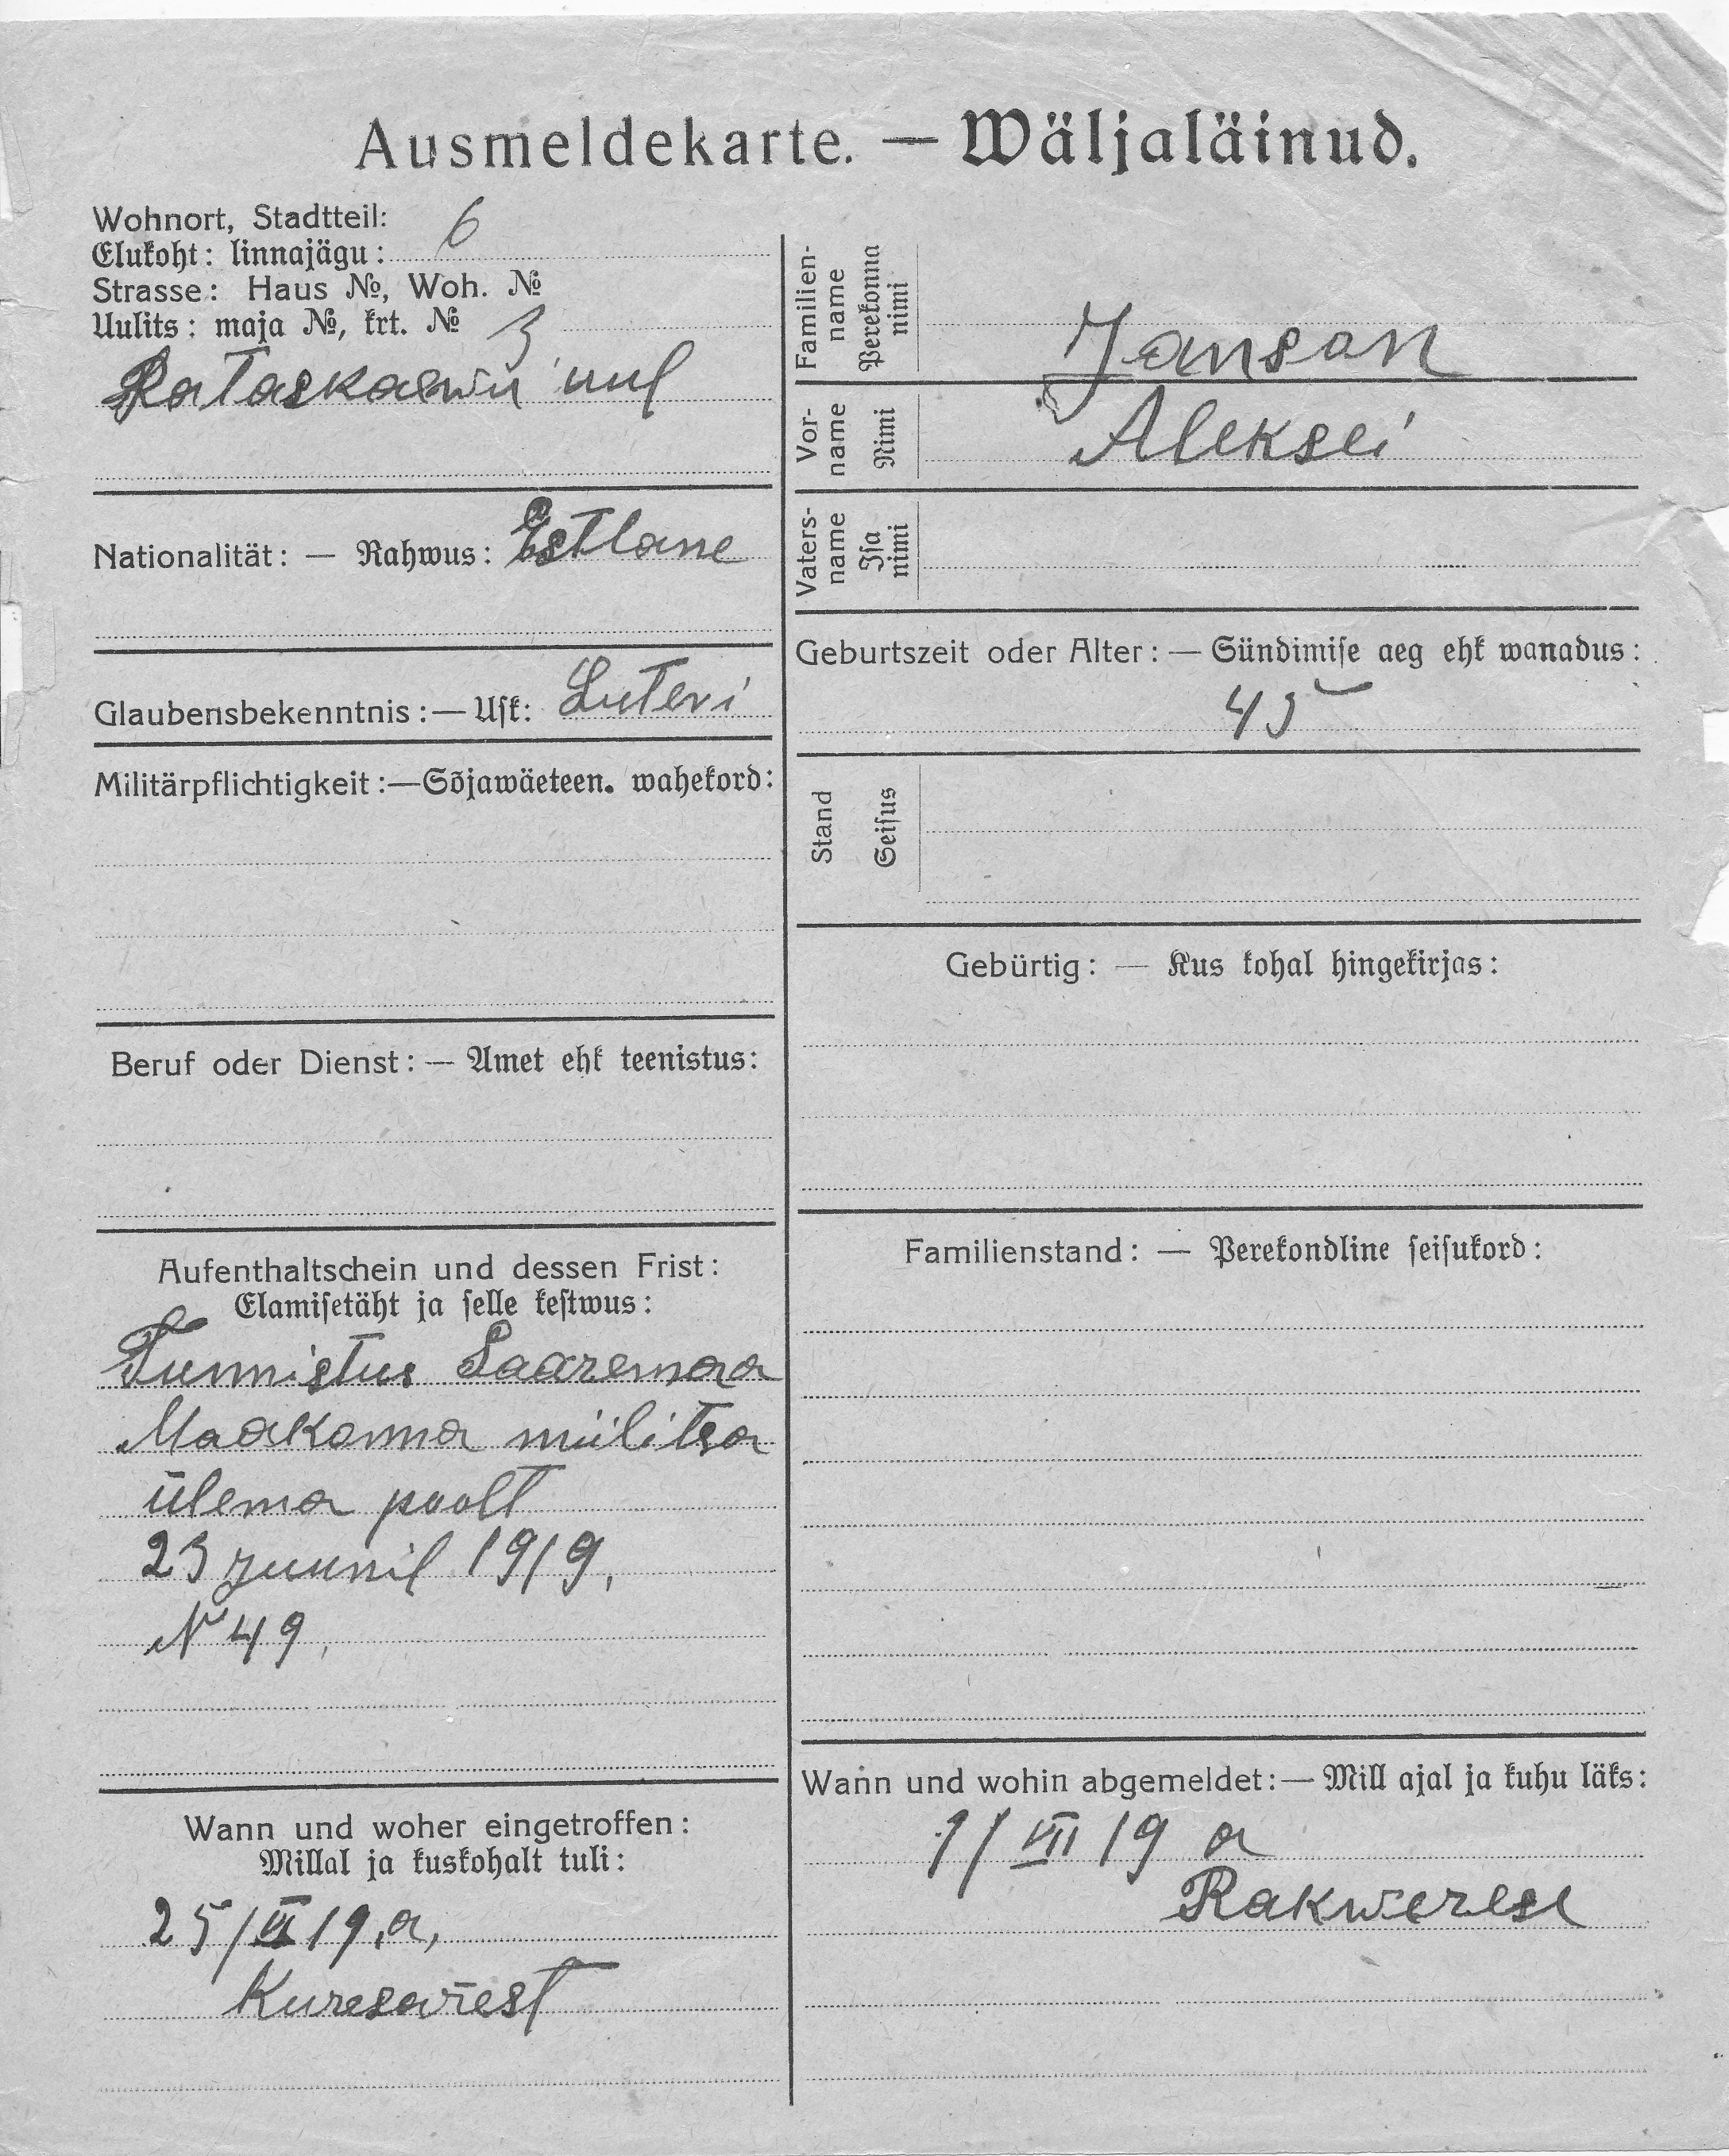 Ausmeldekarte. — Wäljaläinud.
Wohnort, Stadtteil: 6
Elukoht: linnajägu:
Strasse: Haus №, Woh. №
Uulits: maja №, krt. № 3
Rataskaewu uul
Nationalität: — Rahwus: Estlane
Glaubensbekenntnis: — Usk: Luteri
Militärpflichtigkeit: — Sõjawäeteen. wahekord:
Beruf oder Dienst: — Amet ehk teenistus:
Aufenthaltschein und dessen Frist:
Elamisetäht ja selle kestwus:
Tunnistus Saaremaa
Maakonna miilitsa
ülema poolt
23 juunil 1919.
N 49.
Wann und woher eingetroffen:
Millal ja kuskohalt tuli:
25/VI 19.a,
Kuresarest
Familien-
name
Perekonna
nimi
Janson
Vor-
name
Nimi
Aleksei
Vaters-
name
Isa
nimi
Geburtszeit oder Alter: — Sündimise aeg ehk wanadus:
45
Stand
Seisus
Gebürtig: — Kus kohal hingekirjas:
Familienstand: — Perekondline seisukord:
Wann und wohin abgemeldet: — Mill ajal ja kuhu läks:
1/VII 19 a
Rakwerese